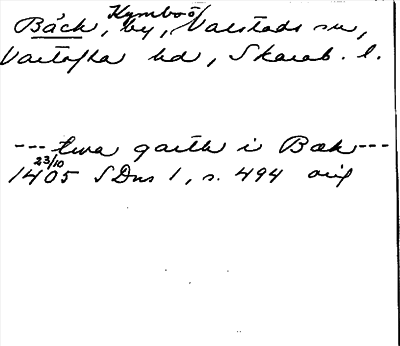 Kymbo
Bäck, by, Valstads sn,
Vartofta hd, Skarab. l.
--- twa garth i Bæk ---
23/10
1405 SDns 1, s. 494 orig